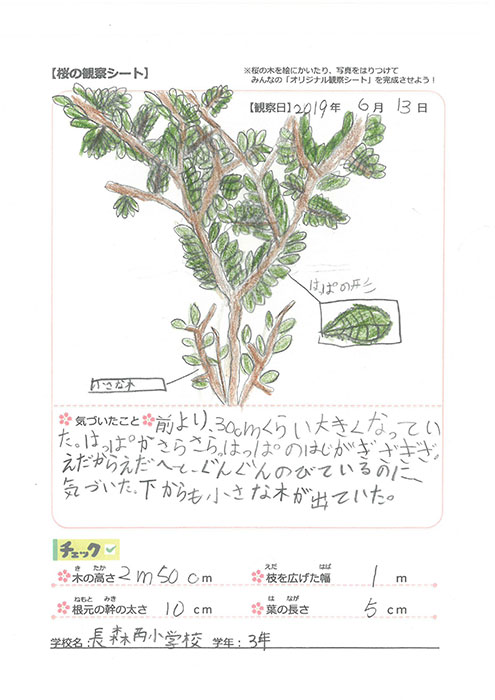 【桜の観察シート】
※桜の木を絵にかいたり、写真をはりつけて
みんなの「オリジナル観察シート」を完成させよう!
【観察日】2019年 6月 13日
はっぱの形
小さな木
気づいたこと 前より、30cmくらい大きくなってい
た。はっぱがさらさら。はっぱのはじがぎざぎざ。
えだからえだへと、ぐんぐんのびているのに
気づいた。下からも小さな木が出ていた。
チェック
木の高さ 2m50cm
きたか
枝を広げた幅 1 m
えだ はば
根元の幹の太さ 10 cm
ねもと みき
葉の長さ 5 cm
は なが
学校名: 長森西小学校 学年: 3年